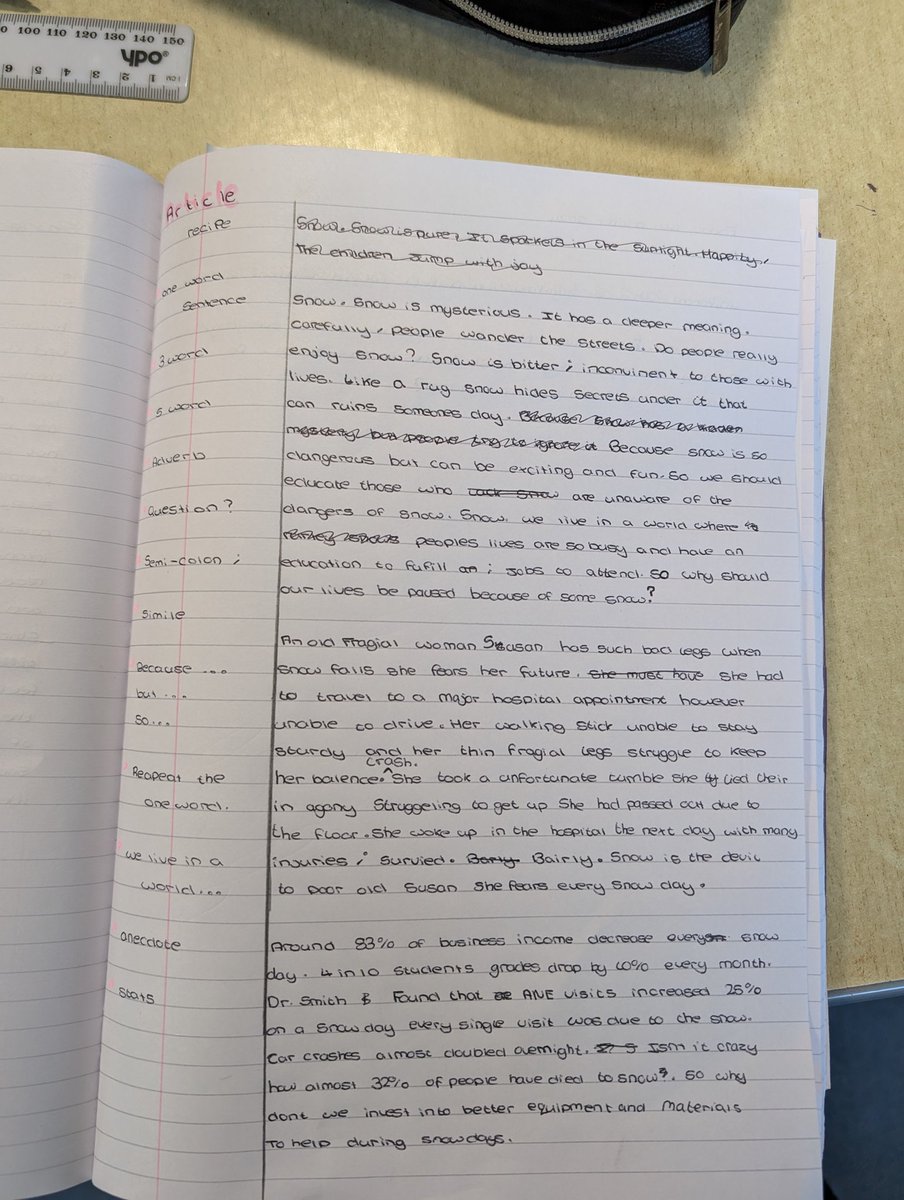 0 100 110 120 130 140 150
ypo®
6 5 4 3 2 1 CM
Article
recipe
one word
Sentence
3 word
5 word
Adverb
Question?
Semi-colon ;
Simile
Because ...
but ...
so ...
Reapeat the
one word.
we live in a
world...
anecdote
stats
Snow. Snow is pure, It spockels in the sunlight. Happily,
The children Jump with joy
Snow. Snow is mysterious. It has a deeper meaning.
Carefully, people wander the streets. Do people really
enjoy snow? Snow is bitter; inconvinent to those with
lives. Like a rug snow hides secrets under it that
can ruins someones day. Because snow has a hidden
mystery but people try to ignore it Because snow is so
dangerous but can be exciting and fun. So we should
educate those who lack snow are unaware of the
dangers of snow. Snow. we live in a world where
peoples lives are so busy and have an
education to fufill an; jobs to attend. so why should
our lives be paused because of some snow?
An old Fragial woman Susan has such bad legs when
snow falls she fears her future. She must have she had
to travel to a major hospital appointment however
unable to drive. Her walking stick unable to stay
sturdy and her thin fragial legs struggle to keep
crash.
her balence. She took a unfortunate tumble she lied their
in agony Struggeling to get up She had passed out due to
the floor. She woke up in the hospital the next day with many
injuries; survied. Barly Bairly. Snow is the devil
to poor old Susan she fears every snow day.
Around 83% of business income decrease every snow
day. 4 in 10 students grades drop by 60% every month.
Dr. Smith Found that ANE visits increased 25%
on a snow day every single visit was due to the snow.
Car crashes almost doubled overnight. Isnt it crazy
how almost 32% of people have died to snow?. So why
dont we invest into better equipment and materials
To help during snow days.